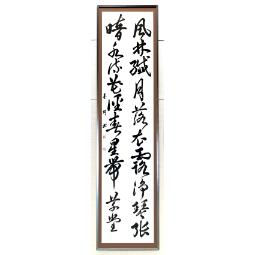 風林纖月落衣露淨琴張
暗水流花徑春星帶草堂